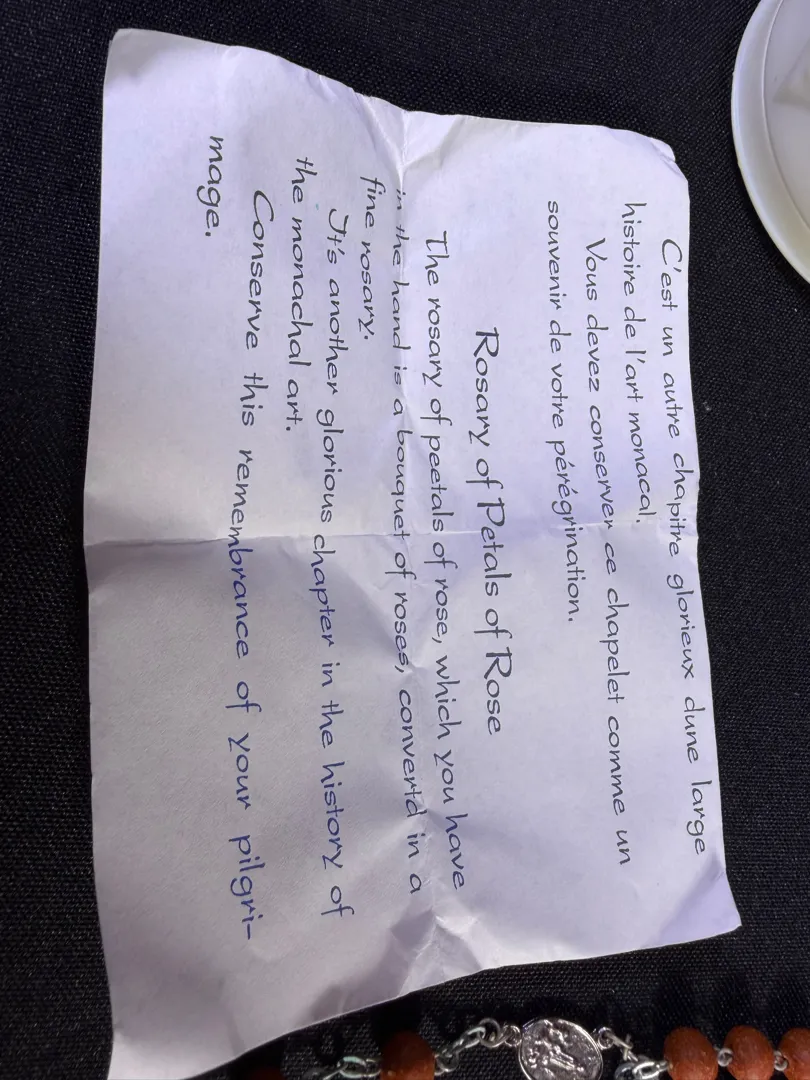 C'est un autre chapitre glorieux dune large
histoire de l'art monacal.
Vous devez conserver ce chapelet comme un
souvenir de votre pérégrination.
Rosary of Petals of Rose
The rosary of peetals of rose, which you have
in the hand is a bouquet of roses, convertd in a
fine rosary.
It's another glorious chapter in the history of
the monachal art.
Conserve this remembrance of your pilgri-
mage.